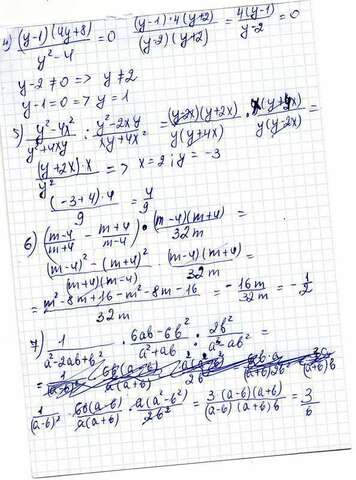 4) (y-1)(4y+8)/(y²-4) = 0   (y-1)·4(y+2)/((y-2)(y+2)) = 4(y-1)/(y-2) = 0
y-2 ≠ 0 => y ≠ 2
y-1=0 => y=1
5) (y²-4x²)/(y²+4xy) : (y²-2xy)/(xy+4x²) = (y-2x)(y+2x)/(y(y+4x)) · x(y+4x)/(y(y-2x)) =
(y+2x)·x/y² => x=2; y=-3
(-3+4)·4/9 = 4/9
6) ((m-4)/(m+4) - (m+4)/(m-4)) · (m-4)(m+4)/32m =
((m-4)²-(m+4)²)/((m+4)(m-4)) (m-4)(m+4)/32m =
= (m²-8m+16-m²-8m-16)/32m = -16m/32m = -1/2
7) 1/(a²-2ab+b²) · (6ab-6b²)/(a²+ab) : 2b²/(a³-ab²) =
1/(a-b)² · 6b(a-b)/(a(a+b)) · a(a²-b²)/2b² = 3(a-b)(a+b)/((a-b)(a+b)b) = 3/b